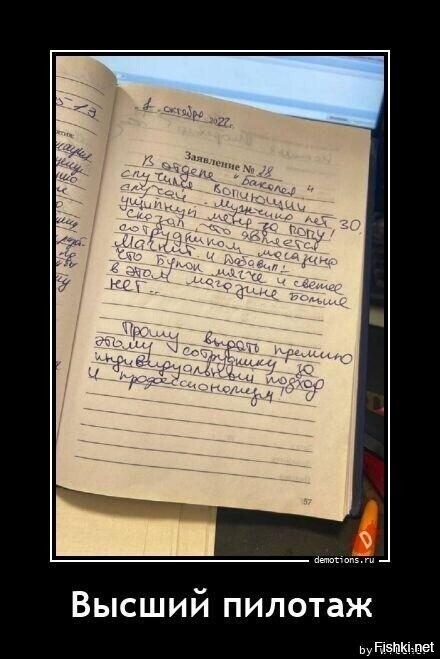 1 октября 2022г.
Заявление № 28
В отделе "Бакалея"
случился вопиющий
случай. Мужчина лет 30.
ущипнул меня за попу!
сказал, что является
сотрудником магазина
Магнит и добавил!
что булок мягче и свежее
в этом магазине больше
нет..
Прошу выдать премию
этому сотруднику за
индивидуальный подход
и профессионализм!
57
demotions.ru
Высший пилотаж
Fishki.net
by